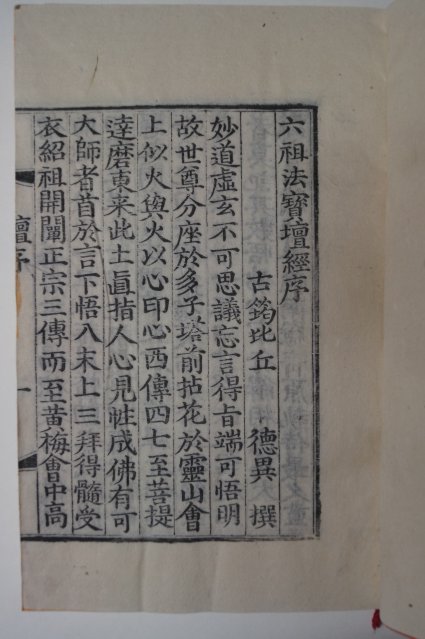 六祖法寶壇經序
古筠比丘 德異 撰
妙道虛玄不可思議忘言得旨端可悟明
故世尊分座於多子塔前拈花於靈山會
上似火與火以心印心西傳四七至菩提
達磨東来此土直指人心見性成佛有可
大師者首於言下悟入末上三拜得髓受
衣紹祖開闡正宗三傳而至黃梅會中高
壇序
一